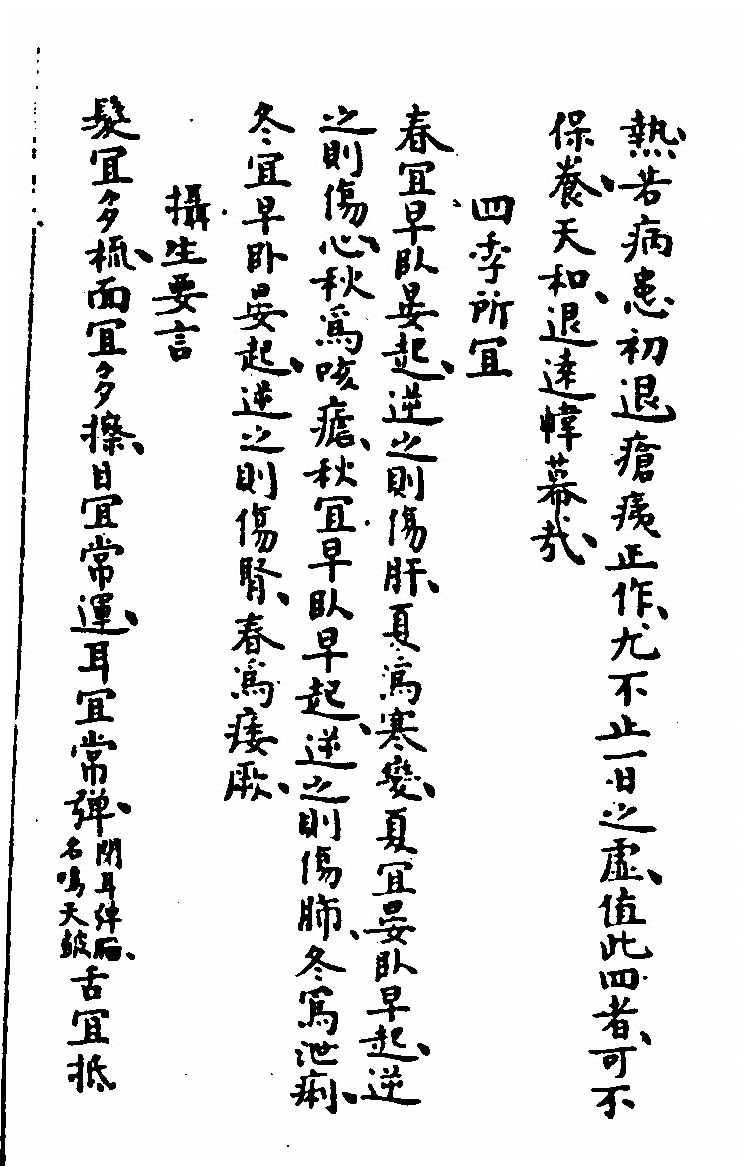 熱、若病患初退瘡痍正作、尤不止一日之虛、值此四者、可不
保養天和、退遠幃幕哉、
四季所宜
春宜早臥晏起、逆之則傷肝、夏爲寒變、夏宜晏臥早起、逆
之則傷心、秋爲咳瘧、秋宜早臥早起、逆之則傷肺、冬爲泄痢、
冬宜早卧晏起、逆之則傷腎、春爲痿厥、
攝生要言
髮宜多梳、面宜多擦、目宜常運、耳宜常弹、閉耳弹腦、名鳴天皷舌宜抵